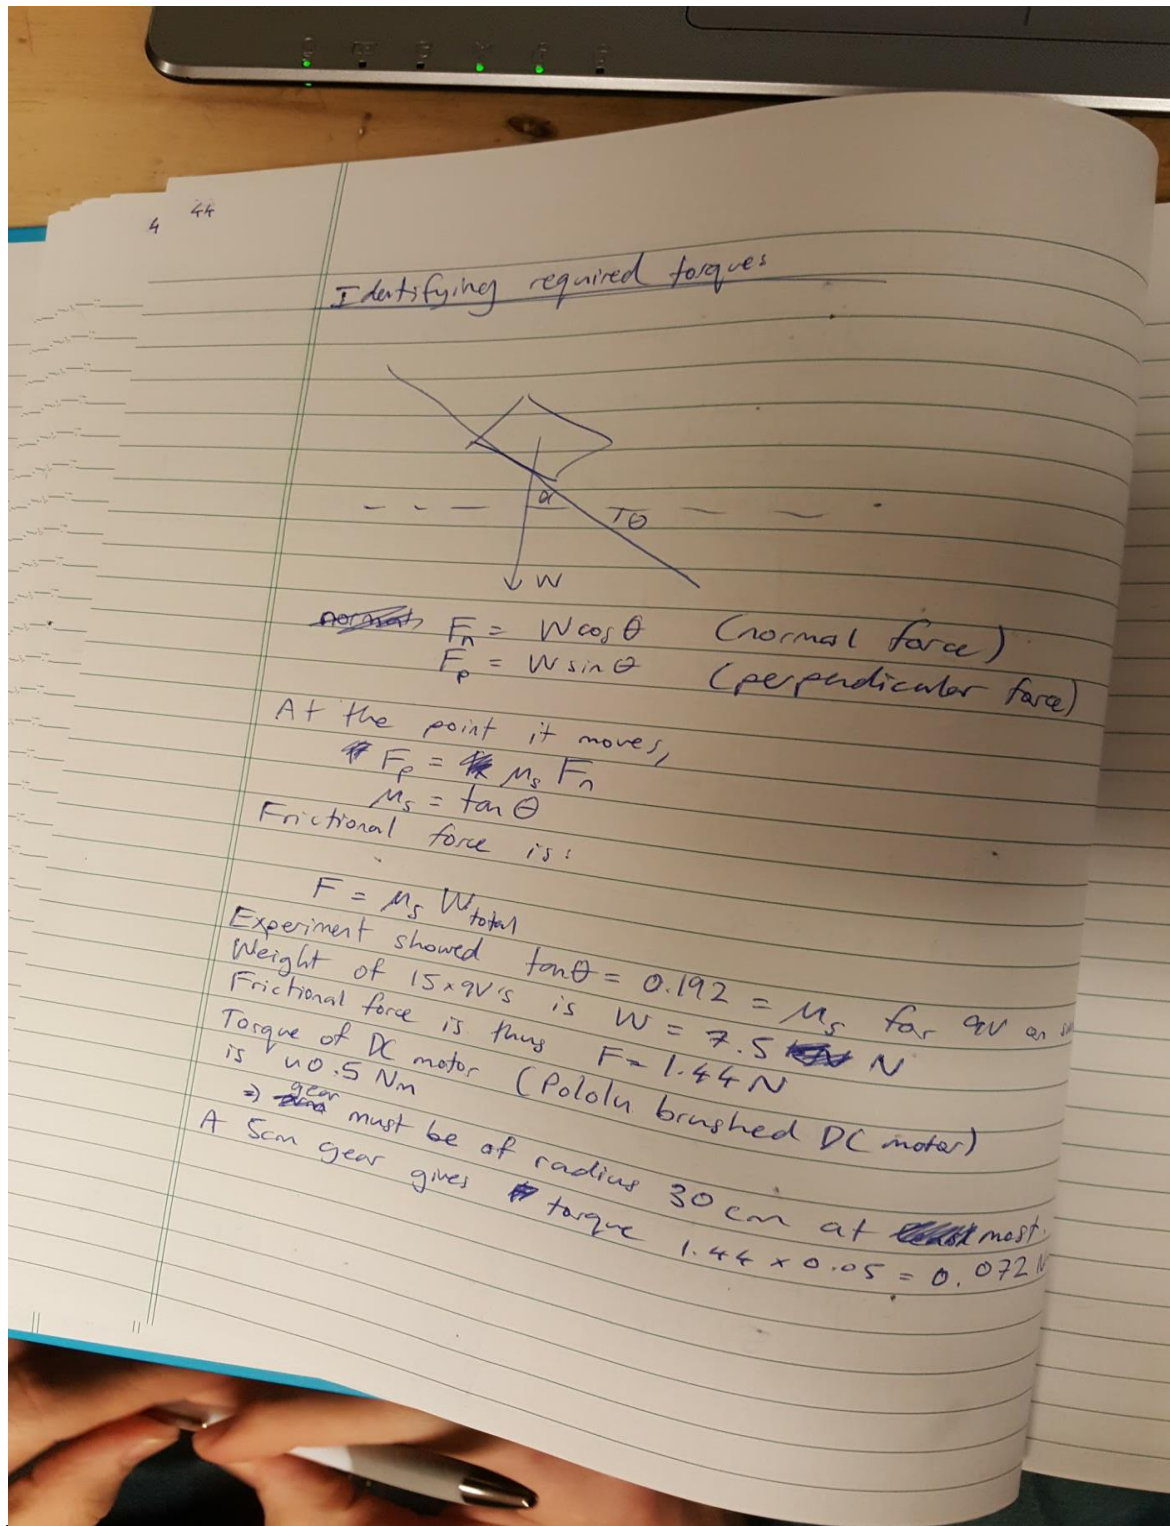 4 44
Identifying required torques
α
θ
W
Fn = W cos θ (normal force)
Fp = W sin θ (perpendicular force)
At the point it moves,
Fp = μs Fn
μs = tan θ
Frictional force is:
F = μs Wtotal
Experiment showed tanθ = 0.192 = μs for 9V on
Weight of 15×9V's is W = 7.5 N
Frictional force is thus F = 1.44 N
Torque of DC motor (Pololu brushed DC motor)
is ~0.5 Nm
⇒ gear must be of radius 30 cm at most.
A 5cm gear gives torque 1.44 × 0.05 = 0.072 N